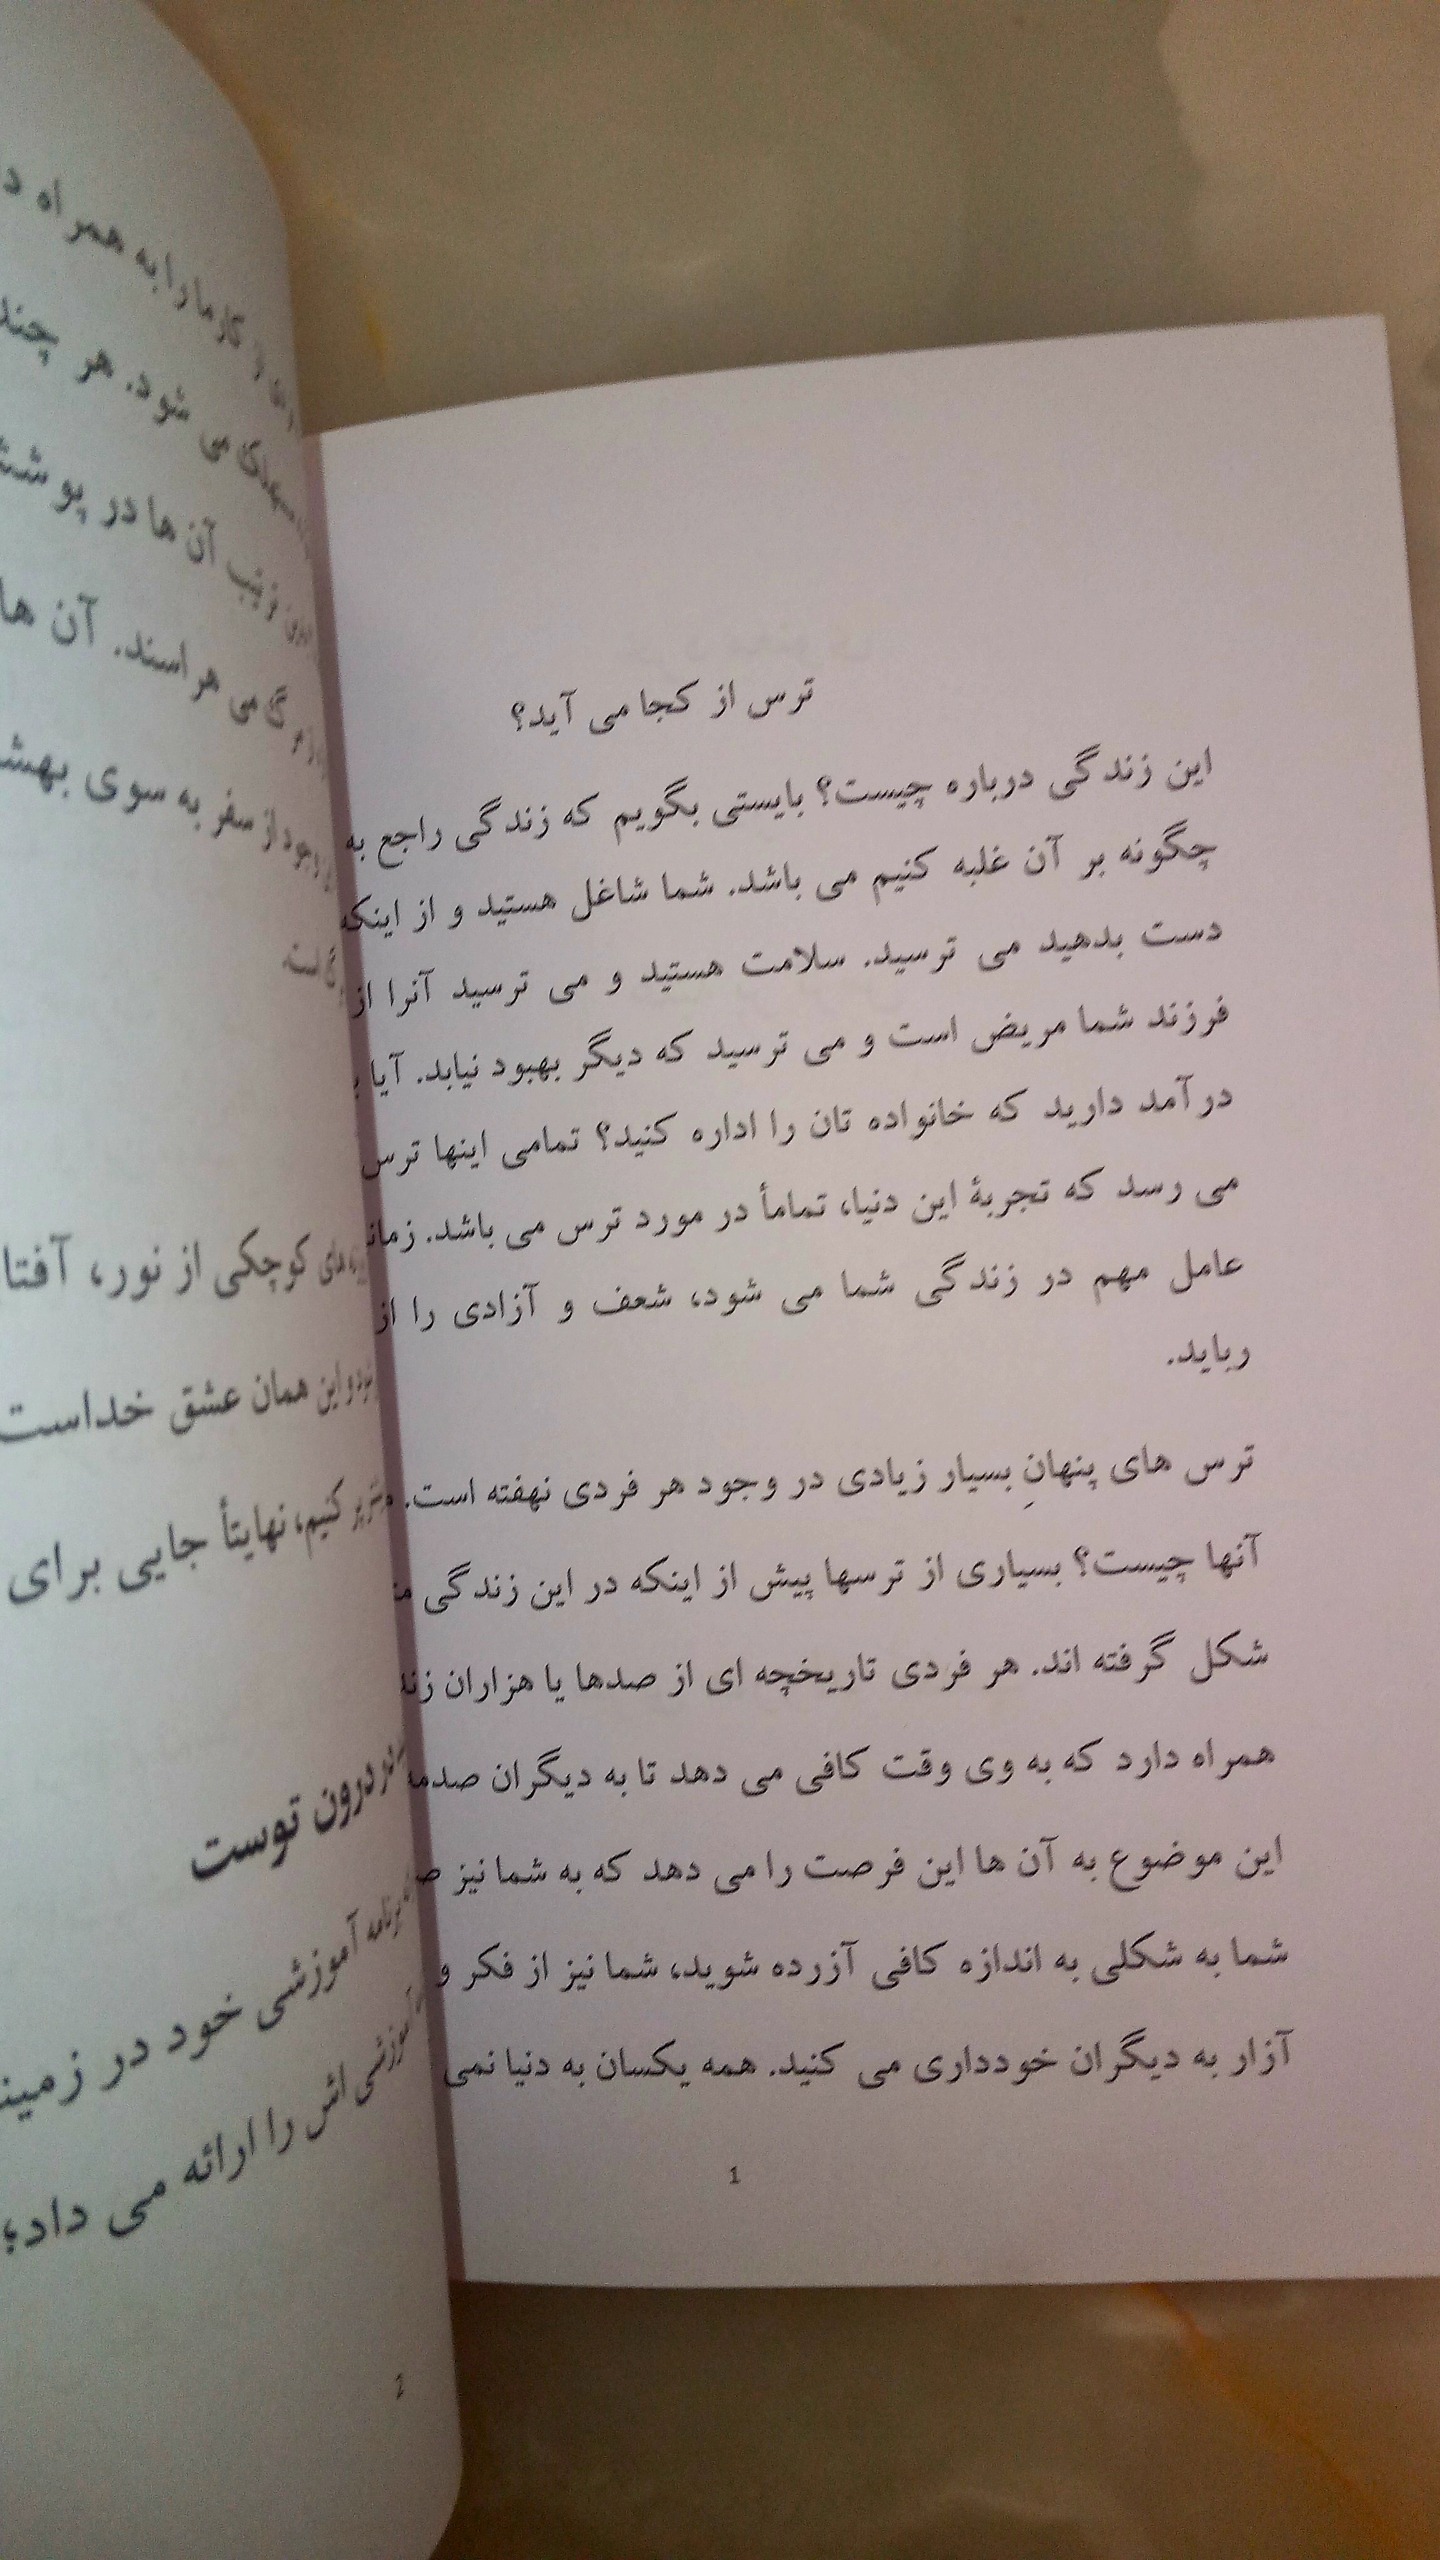 ترس از کجا می آید؟
این زندگی درباره چیست؟ بایستی بگویم که زندگی راجع به
چگونه بر آن غلبه کنیم می باشد. شما شاغل هستید و از اینکه
دست بدهید می ترسید. سلامت هستید و می ترسید آنرا از
فرزند شما مریض است و می ترسید که دیگر بهبود نیابد. آیا
درآمد دارید که خانواده تان را اداره کنید؟ تمامی اینها ترس
می رسد که تجربۀ این دنیا، تماماً در مورد ترس می باشد.
عامل مهم در زندگی شما می شود، شعف و آزادی را از
رباید.
ترس های پنهانِ بسیار زیادی در وجود هر فردی نهفته است.
آنها چیست؟ بسیاری از ترسها پیش از اینکه در این زندگی
شکل گرفته اند. هر فردی تاریخچه ای از صدها یا هزاران
همراه دارد که به وی وقت کافی می دهد تا به دیگران
این موضوع به آن ها این فرصت را می دهد که به شما نیز
شما به شکلی به اندازه کافی آزرده شوید، شما نیز از فکر و
آزار به دیگران خودداری می کنید. همه یکسان به دنیا نمی
1
کارما را به همراه
می شود. هر چند
آن ها در
می هراسند. آن ها
از سفر به سوی
کوچکی از نور،
این همان عشق خداست
کنیم، نهایتاً جایی برای
درون توست
آموزشی خود در
آموزشی اش را ارائه می داد؛
2